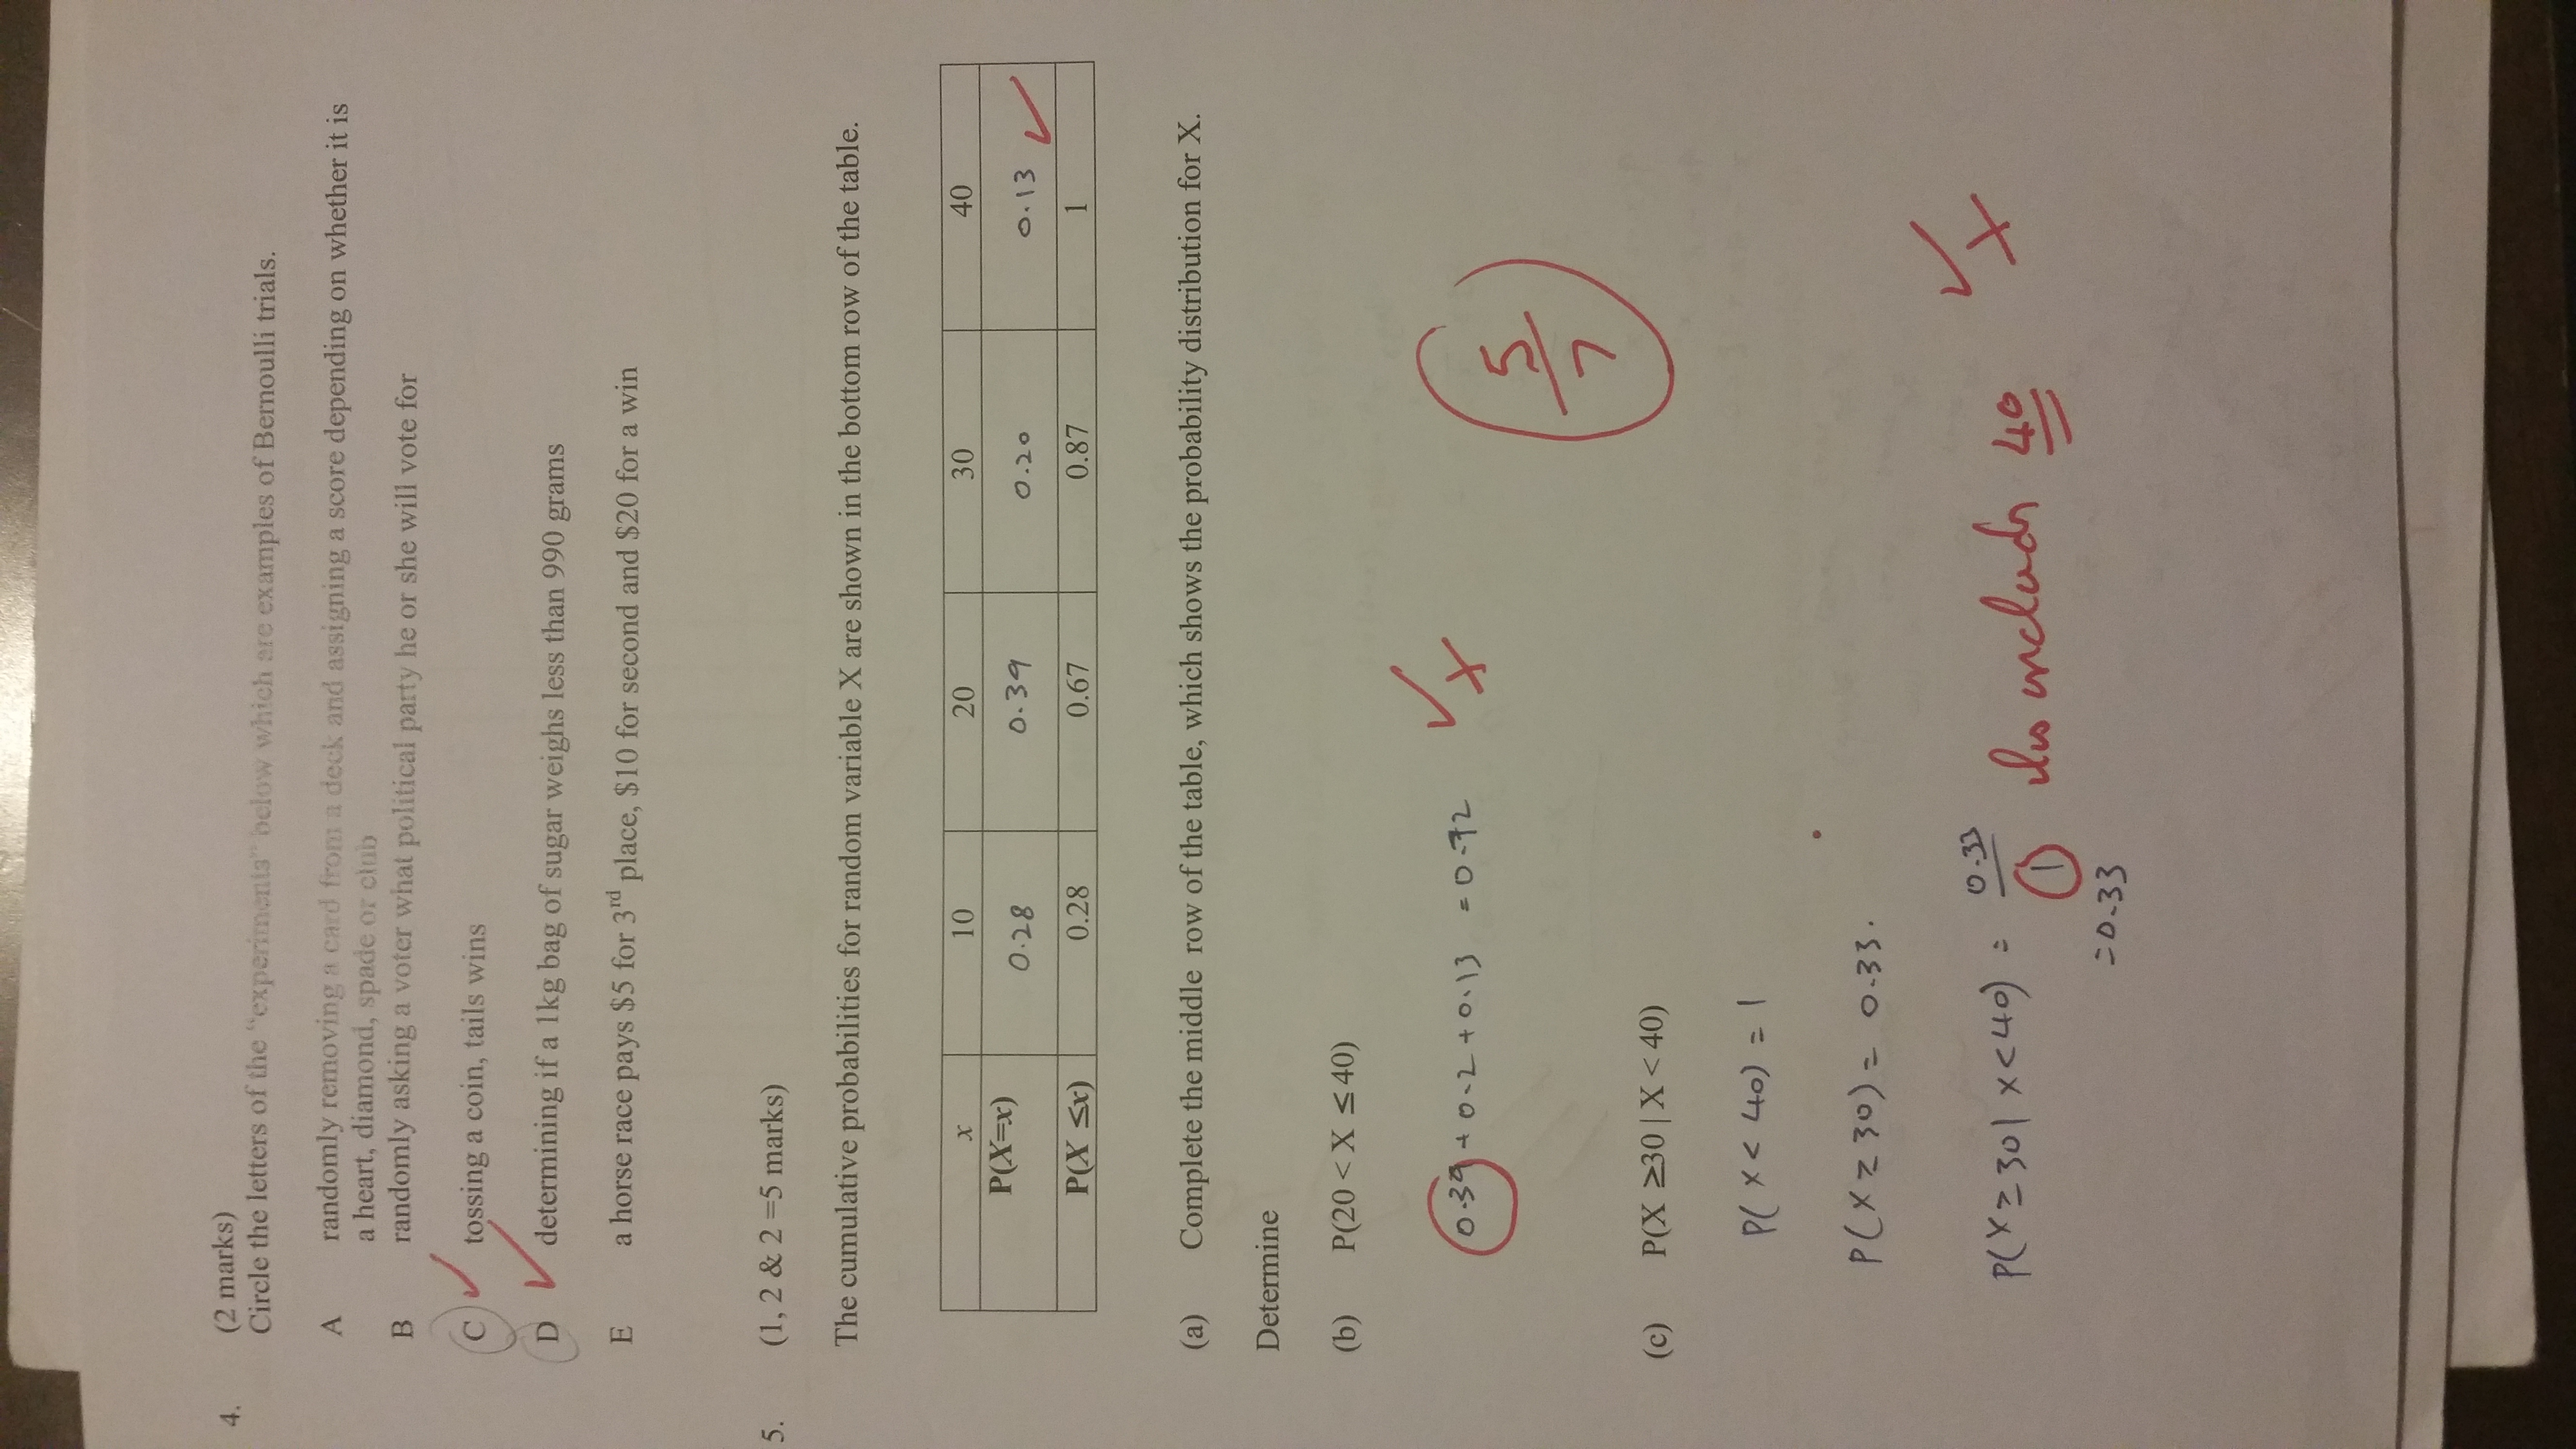 4. (2 marks)
Circle the letters of the "experiments" below which are examples of Bernoulli trials.
A randomly removing a card from a deck and assigning a score depending on whether it is
a heart, diamond, spade or club
B randomly asking a voter what political party he or she will vote for
C ✓ tossing a coin, tails wins
D ✓ determining if a 1kg bag of sugar weighs less than 990 grams
E a horse race pays $5 for 3rd place, $10 for second and $20 for a win
5. (1, 2 & 2 =5 marks)
The cumulative probabilities for random variable X are shown in the bottom row of the table.
x 10 20 30 40
P(X=x) 0.28 0.39 0.20 0.13 ✓
P(X ≤x) 0.28 0.67 0.87 1
(a) Complete the middle row of the table, which shows the probability distribution for X.
Determine
(b) P(20 < X ≤ 40)
0.39 + 0.2 + 0.13 = 0.72 ✓ X
5/7
(c) P(X ≥30 | X < 40)
P( X < 40) = 1
P(X ≥ 30) = 0.33.
P(X ≥ 30 | X < 40) = 0.33 / 1 includes 40 ✓ X
= 0.33